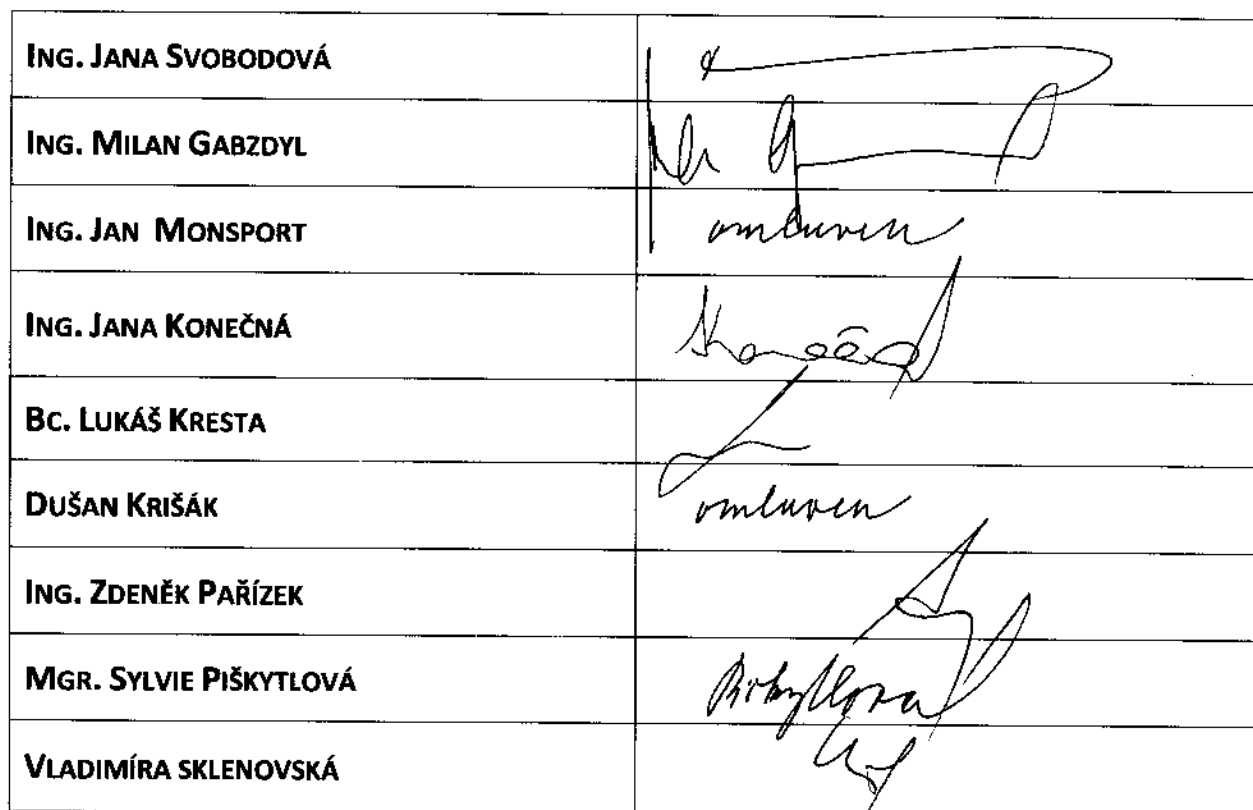 ING. JANA SVOBODOVÁ
ING. MILAN GABZDYL
ING. JAN MONSPORT omluven
ING. JANA KONEČNÁ
BC. LUKÁŠ KRESTA
DUŠAN KRIŠÁK omluven
ING. ZDENĚK PAŘÍZEK
MGR. SYLVIE PIŠKYTLOVÁ
VLADIMÍRA SKLENOVSKÁ